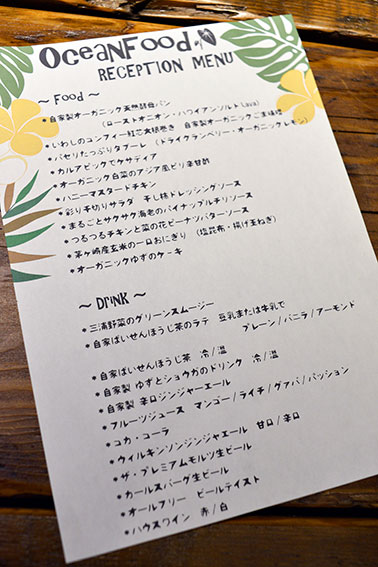 OCEANFOOD
RECEPTION MENU
～ FOOD ～
*自家製オーガニック天然酵母パン
(ローストオニオン・ハワイアンソルトLava)
*いわしのコンフィー紅芯大根巻き 自家製オーガニックごま味噌
*パセリたっぷりタブーレ (ドライクランベリー・オーガニックレモン)
*カルアピッグでケサディア
*オーガニック白菜のアジア風ピリ辛甘酢
*ハニーマスタードチキン
*彩り千切りサラダ 干し柿ドレッシングソース
*まるごとサクサク海老のパイナップルチリソース
*つるつるチキンと菜の花ピーナツバターソース
*茅ヶ崎産玄米の一口おにぎり (塩昆布・揚げ玉ねぎ)
*オーガニックゆずのケーキ
～ DRINK ～
*三浦野菜のグリーンスムージー
*自家ばいせんほうじ茶のラテ 豆乳または牛乳で
プレーン/バニラ/アーモンド
*自家ばいせんほうじ茶 冷/温
*自家製 ゆずとショウガのドリンク 冷/温
*自家製 辛口ジンジャーエール
*フルーツジュース マンゴー/ライチ/グァバ/パッション
*コカ・コーラ
*ウィルキンソンジンジャエール 甘口/辛口
*ザ・プレミアムモルツ生ビール
*カールスバーグ生ビール
*オールフリー ビールテイスト
*ハウスワイン 赤/白